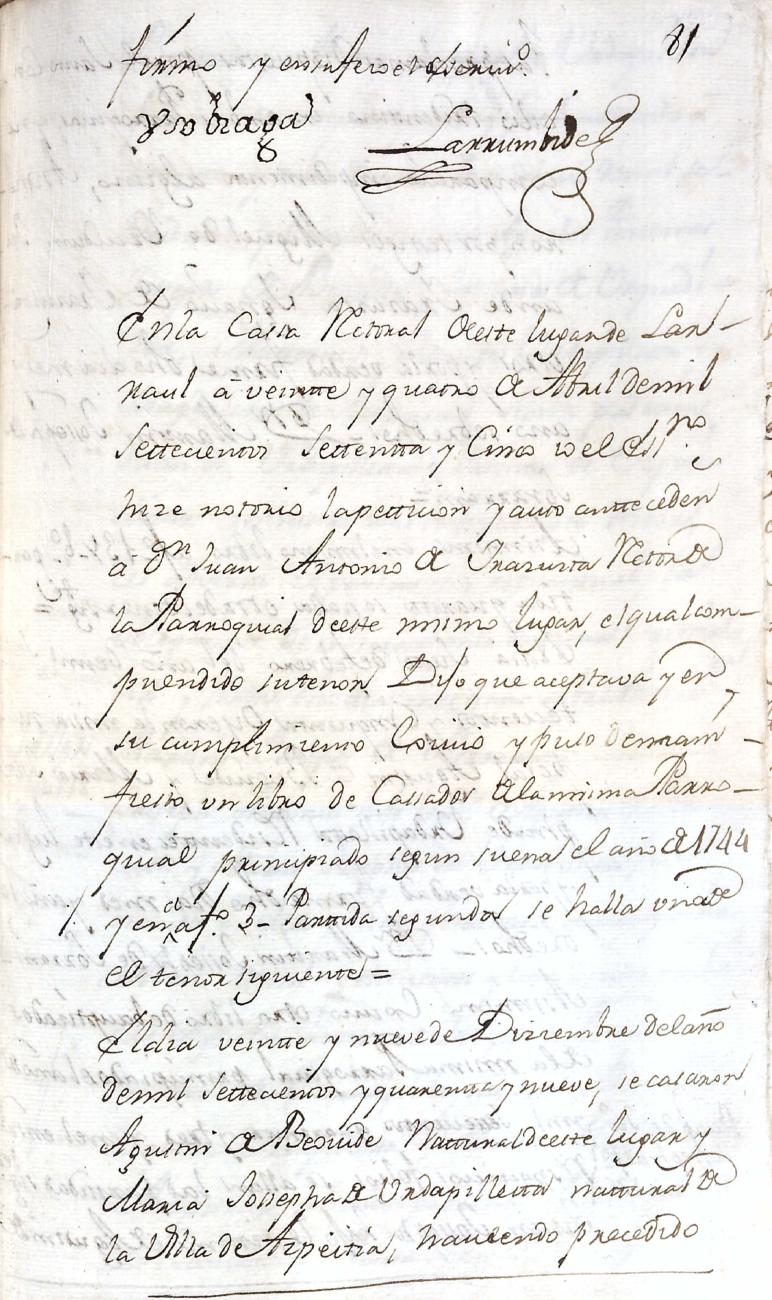 81
firmo y en su fee el Escriuº.
Larrumbide
En la Cassa Retoral de este lugar de Larr-
raul a veintte y quatro de Abril de mil
settecientos settentta y Cinco io el Essnº
hize notorio la pettizion y auto antteceden
a Dn Juan Antonio de Irazusta Retor de
la Parroquial de este mismo lugar, el qual com-
prendido su tenor Dijo que aceptava y en
su cumplimiento Exiuio y puso de man-
fiesto, vn libro de Cassados de la misma Parro-
quial principiado segun suena el año de 1744
y en el fº. 3- Partida segunda se halla vna de
el tenor siguiente=
El dia veintte y nueve de Diziembre del año
de mil settecientos y quarentta y nueve, se casaron
Agustin de Beovide Natturál de este lugar y
Maria Josepha de Vrdapilletta nattural de
la Villa de Azpeitia, haviendo precedido